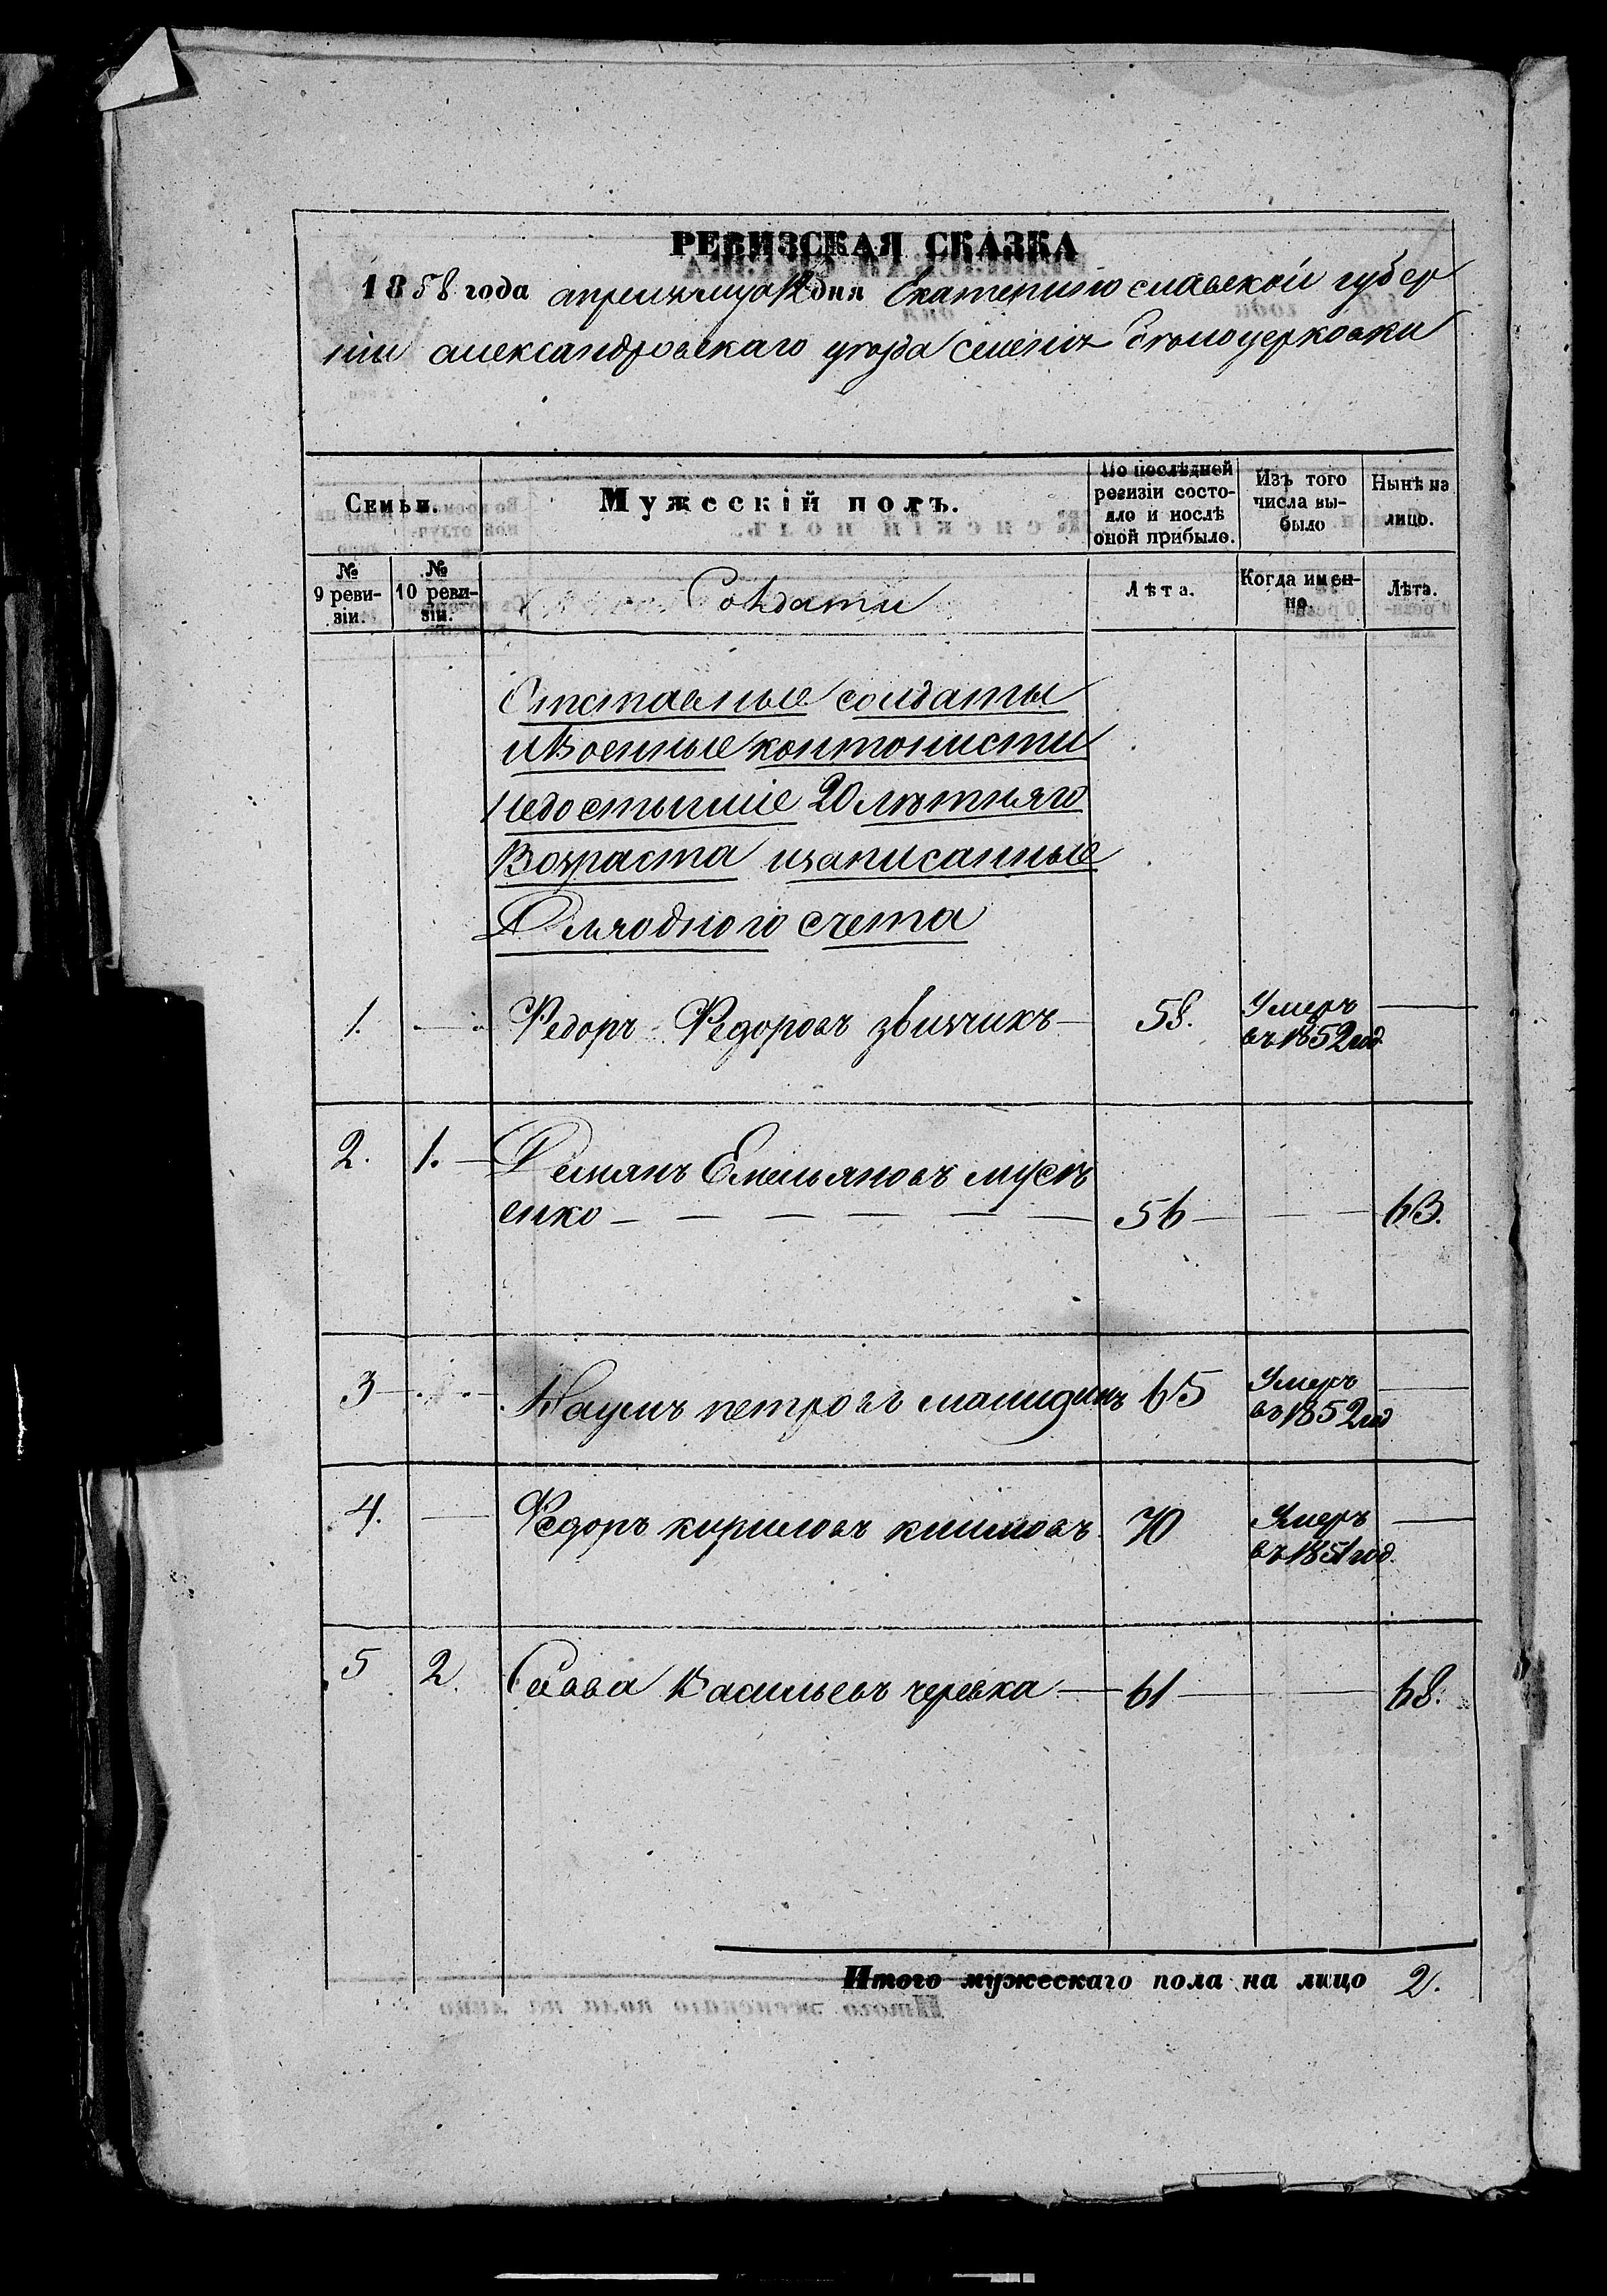 РЕВИЗСКАЯ СКАЗКА
1858 года апреля 12 дня Екатеринославской губер
нии александровскаго уезда селения беломоцерковки
Семьи.
Мужескій полъ.
По послѣдней ревизіи состо-
яло и послѣ
оной прибыло.
Изъ того
числа вы-
было
Нынѣ на
лицо.
№
9 реви-
зіи.
№
10 реви-
зіи.
Солдати
Лѣта.
Когда имен-
но.
Лѣта.
Отставные солдаты
и Военные контонисти
недостигшіе 20 лѣтняго
Возраста изаписанные
Для одного счета
1. — Федоръ Федоровъ — 58. Умеръ —
въ 1852 год.
2. 1. — Демянъ Емельяновъ мусі
енко — — — — — — 56 — — 63.
3 — Наумъ петровъ 65 Умеръ —
въ 1852 год
4. — Федоръ кириловъ климовъ 70 Умеръ —
въ 1851 год.
5 2. Савва Васильевъ черевка — 61 — — 68.
Итого мужескаго пола на лицо 2.